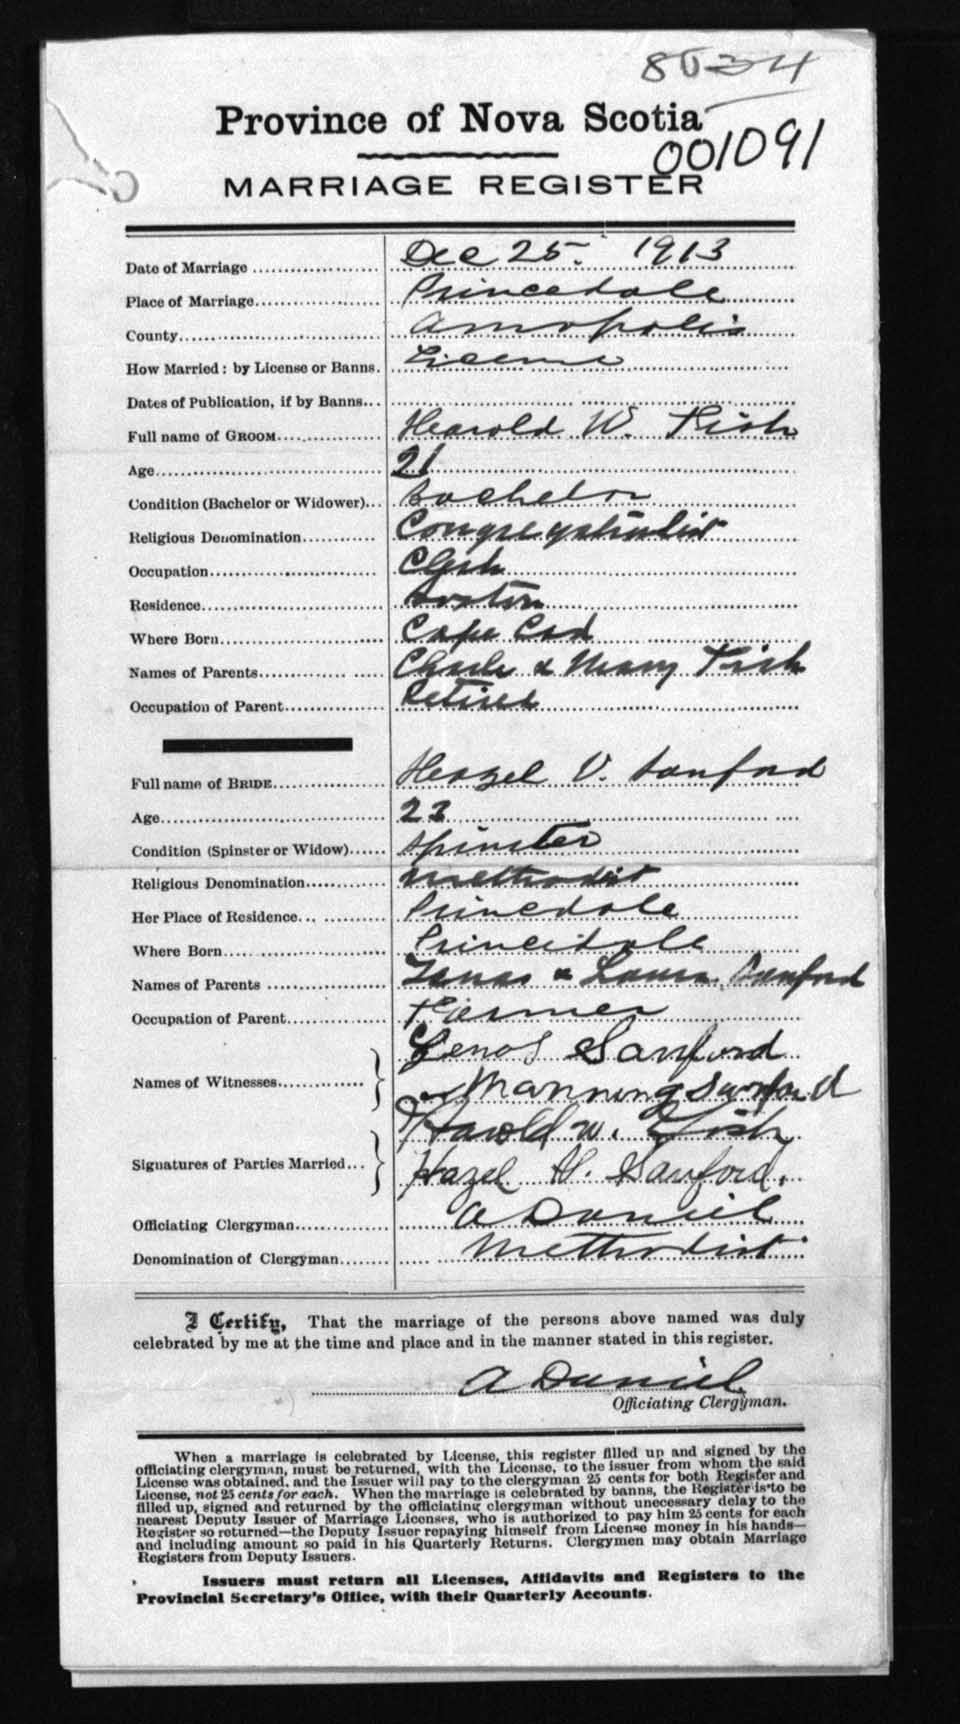 8534
Province of Nova Scotia
001091
MARRIAGE REGISTER
Date of Marriage Dec 25. 1913
Place of Marriage Princedale
County Annapolis
How Married: by License or Banns. License
Dates of Publication, if by Banns
Full name of GROOM Hearold W. Fish
Age 21
Condition (Bachelor or Widower) Bachelor
Religious Denomination Congregationalist
Occupation
Residence Boston
Where Born Cape Cod
Names of Parents Charls & Mary Fish
Occupation of Parent Retired
Full name of BRIDE Heazel V. Sanford
Age 23
Condition (Spinster or Widow) Spinster
Religious Denomination Methodist
Her Place of Residence Princdale
Where Born Princedale
Names of Parents & Laura Sanford
Occupation of Parent Farmer
Names of Witnesses Zenos Sanford
Manning Sanford
Signatures of Parties Married Harold W. Fish
Hazel H. Sanford.
Officiating Clergyman A Daniel
Denomination of Clergyman Methodist
I Certify, That the marriage of the persons above named was duly
celebrated by me at the time and place and in the manner stated in this register.
A Daniel
Officiating Clergyman.
When a marriage is celebrated by License, this register filled up and signed by the
officiating clergyman, must be returned, with the License, to the issuer from whom the said
License was obtained, and the Issuer will pay to the clergyman 25 cents for both Register and
License, not 25 cents for each. When the marriage is celebrated by banns, the Register is to be
filled up, signed and returned by the officiating clergyman without unecessary delay to the
nearest Deputy Issuer of Marriage Licenses, who is authorized to pay him 25 cents for each
Register so returned—the Deputy Issuer repaying himself from License money in his hands—
and including amount so paid in his Quarterly Returns. Clergymen may obtain Marriage
Registers from Deputy Issuers.
Issuers must return all Licenses, Affidavits and Registers to the
Provincial Secretary's Office, with their Quarterly Accounts.